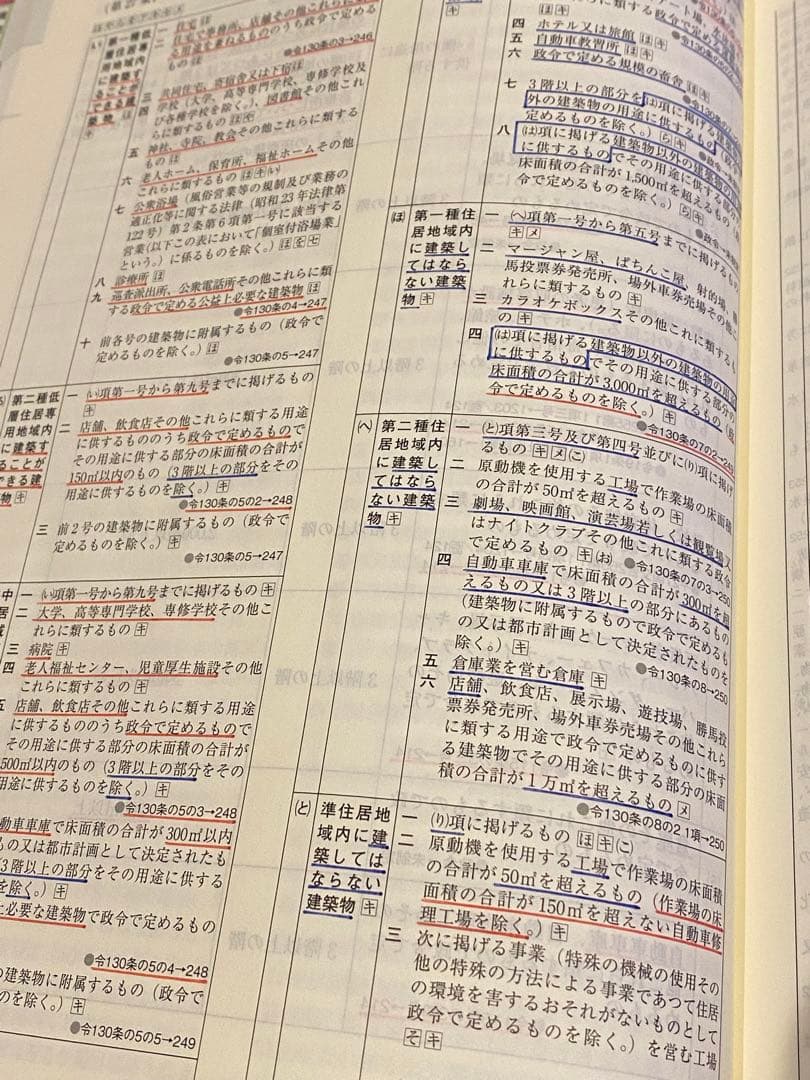 第一種低
層住居専
用地域内
に建築す
ることが
できる建
築物
一 住宅
二 住宅で事務所、店舗その他これらに類す
る用途を兼ねるもののうち政令で定める
もの
●令130条の3→246
三 共同住宅、寄宿舎又は下宿
四 学校(大学、高等専門学校、専修学校及
び各種学校を除く。)、図書館その他これ
らに類するもの
五 神社、寺院、教会その他これらに類する
もの
六 老人ホーム、保育所、福祉ホームその他
これらに類するもの
七 公衆浴場(風俗営業等の規制及び業務の
適正化等に関する法律(昭和23年法律第
122号)第2条第6項第一号に該当する
営業(以下この表において「個室付浴場業」
という。)に係るものを除く。)
八 診療所
九 巡査派出所、公衆電話所その他これらに類
する政令で定める公益上必要な建築物
●令130条の4→247
十 前各号の建築物に附属するもの(政令で
定めるものを除く。)
●令130条の5→247
第二種低
層住居専
用地域内
に建築す
ることが
できる建
築物 キ
一 (い)項第一号から第九号までに掲げるもの
キ
二 店舗、飲食店その他これらに類する用途
に供するもののうち政令で定めるもので
その用途に供する部分の床面積の合計が
150㎡以内のもの(3階以上の部分をその
用途に供するものを除く。)キ
●令130条の5の2→248
三 前2号の建築物に附属するもの(政令で
定めるものを除く。)キ
●令130条の5→247
一 (い)項第一号から第九号までに掲げるもの キ
二 大学、高等専門学校、専修学校その他こ
れらに類するもの キ
三 病院 キ
四 老人福祉センター、児童厚生施設その他
これらに類するもの キ
五 店舗、飲食店その他これらに類する用途
に供するもののうち政令で定めるもので
その用途に供する部分の床面積の合計が
500㎡以内のもの(3階以上の部分をその
用途に供するものを除く。)キ
●令130条の5の3→248
自動車車庫で床面積の合計が300㎡以内
の又は都市計画として決定されたも
(3階以上の部分をその用途に供する
を除く。)キ
必要な建築物で政令で定めるもの
●令130条の5の4→248
の建築物に附属するもの(政令で
のを除く。)キ
●令130条の5の5→249
四 ホテル又は旅館
五 自動車教習所
六 政令で定める規模の畜舎
七 3階以上の部分を(は)項に掲げる建築物以
外の建築物の用途に供するもの
定めるものを除く。)
八 (は)項に掲げる建築物以外の建築物の
に供するものでその用途に供する部分
床面積の合計が1,500㎡を超えるもの
令で定めるものを除く。)
(ほ) 第一種住
居地域内
に建築し
てはなら
ない建築
物 キ
一 (へ)項第一号から第五号までに掲げるもの
キ メ
二 マージャン屋、ぱちんこ屋、射的場、
馬投票券発売所、場外車券売場その他こ
れらに類するもの キ
三 カラオケボックスその他これに類するも
の キ
四 (は)項に掲げる建築物以外の建築物の用途
に供するものでその用途に供する部分の
床面積の合計が3,000㎡を超えるもの(政
令で定めるものを除く。)キ
●令130条の7の2→249
(へ) 第二種住
居地域内
に建築し
てはなら
ない建築
物 キ
一 (と)項第三号及び第四号並びに(り)項に掲げ
るもの キ メ (こ)
二 原動機を使用する工場で作業場の床面積
の合計が50㎡を超えるもの キ
三 劇場、映画館、演芸場若しくは観覧場又
はナイトクラブその他これに類する政令
で定めるもの キ (お)
●令130条の7の3→250
四 自動車車庫で床面積の合計が300㎡を超
えるもの又は3階以上の部分にあるもの
(建築物に附属するもので政令で定めるも
の又は都市計画として決定されたものを
除く。)キ
●令130条の8→250
五 倉庫業を営む倉庫 キ
六 店舗、飲食店、展示場、遊技場、勝馬投
票券発売所、場外車券売場その他これら
に類する用途で政令で定めるものに供す
る建築物でその用途に供する部分の床面
積の合計が1万㎡を超えるもの メ
●令130条の8の2 1項→250
(と) 準住居地
域内に建
築しては
ならない
建築物 キ
一 (り)項に掲げるもの ほ キ (こ)
二 原動機を使用する工場で作業場の床面積
の合計が50㎡を超えるもの(作業場の床
面積の合計が150㎡を超えない自動車修
理工場を除く。)キ
三 次に掲げる事業(特殊の機械の使用その
他の特殊の方法による事業であつて住居
の環境を害するおそれがないものとして
政令で定めるものを除く。)を営む工場
そ キ